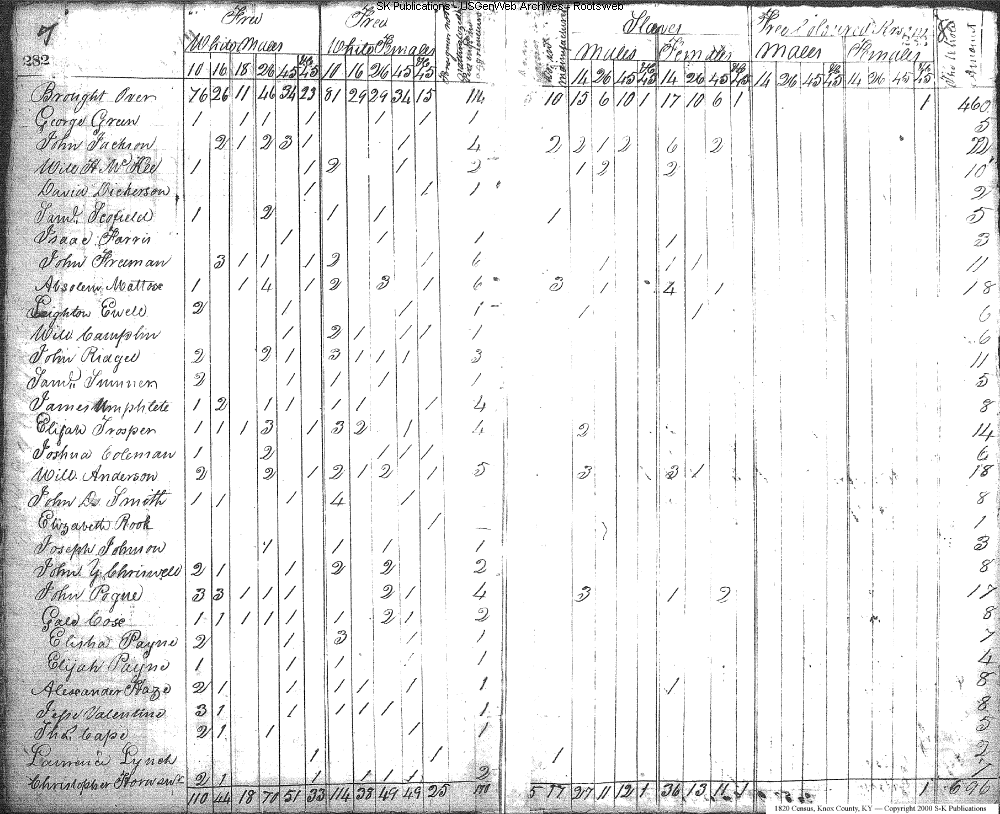 SK Publications - USGenWeb Archives - Rootsweb
7 Free Free Slaves Free Coloured Persons 8
White Males White Females Males Females Males Females The Whole Amount
282
10 16 18 26 45 45 10 16 26 45 45 14 26 45 45 14 26 45 45 14 26 45 45 14 26 45 45
Brought Over 76 26 11 46 34 23 81 29 29 34 15 114 10 15 6 10 1 17 10 6 1 1 460
George Green 1 1 1 1 1 1 1 1 5
John Jackson 2 1 2 3 1 1 4 2 2 1 2 6 2 22
Will H McKee 1 1 2 1 2 1 2 2 10
David Dickerson 1 1 1 2
Saml. Scofield 1 2 1 1 1 5
Isaac Farris 1 1 1 1 3
John Freeman 3 1 1 1 2 1 6 1 1 1 11
Absolem Mattox 1 1 4 1 2 3 1 6 3 1 4 1 18
Leighton Ewell 2 1 1 1 1 1 6
Will Camplin 1 2 1 1 1 1 6
John Ridgel 2 2 1 3 1 1 1 3 11
Saml. Sumner 2 1 1 1 1 5
James Umphlete 1 2 1 1 1 1 1 4 8
Elijah Trosper 1 1 1 3 1 3 2 1 4 2 14
Joshua Coleman 1 2 1 1 1 6
Will Anderson 2 2 1 2 1 2 1 5 3 3 1 18
John D Smith 1 1 1 4 1 8
Elizabeth Rook 1 1
Joseph Johnson 1 1 1 1 3
John Y Chriswell 2 1 1 2 2 2 8
John Pogue 3 3 1 1 1 2 1 4 3 1 2 17
Gale Cose 1 1 1 1 1 1 2 1 2 8
Elisha Payne 2 1 3 1 1 7
Elijah Payne 1 1 1 1 1 4
Alexander Haze 2 1 1 1 1 1 1 1 8
Jesse Valentine 3 1 1 1 1 1 1 8
Thos. Cape 2 1 1 1 1 5
Laurence Lynch 1 1 1 2
Christopher 2 1 1 1 1 1 2 7
110 44 18 70 51 33 114 38 49 49 25 170 5 17 27 11 12 1 36 13 11 1 1 696
1820 Census, Knox County, KY — Copyright 2000 S-K Publications